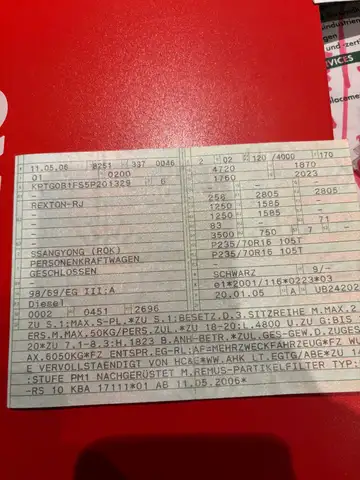 und -zert
VICES
11.05.06 8251 337 0046
01 0200
KPTG0B1FS5P201329 6
-
REXTON-RJ
-
-
SSANGYONG (ROK)
PERSONENKRAFTWAGEN
GESCHLOSSEN
-
98/69/EG III;A
Diesel
0002 0451 2696
2 02 120 /4000 170
4720 1870
1760 2023
- -
258 2805 2805
1250 1585 -
1250 1585 -
83 - 71
3500 750 7 -
P235/70R16 105T
P235/70R16 105T
-
SCHWARZ 9/-
e1*2001/116*0223*03
20.01.05 A UB24202
ZU S.1:MAX.S-PL.*ZU S.1:BESETZ.D.3.SITZREIHE M.MAX.2
ERS.M.MAX.50KG/PERS.ZUL.*ZU 18-20:L.4800 U.ZU G:BIS
20*ZU 7.1-8.3:H.1823 B.ANH-BETR.*ZUL.GES-GEW.D.ZUGES
AX.6050KG*FZ ENTSPR.EG-RL:AF=MEHRZWECKFAHRZEUG*FZ WU
E VERVOLLSTAENDIGT VON HC&E*WW.AHK LT.EGTG/ABE*ZU 11
:STUFE PM1 NACHGERÜSTET M.REMUS-PARTIKELFILTER TYP:
-RS 10 KBA 17111*01 AB 11.05.2006*